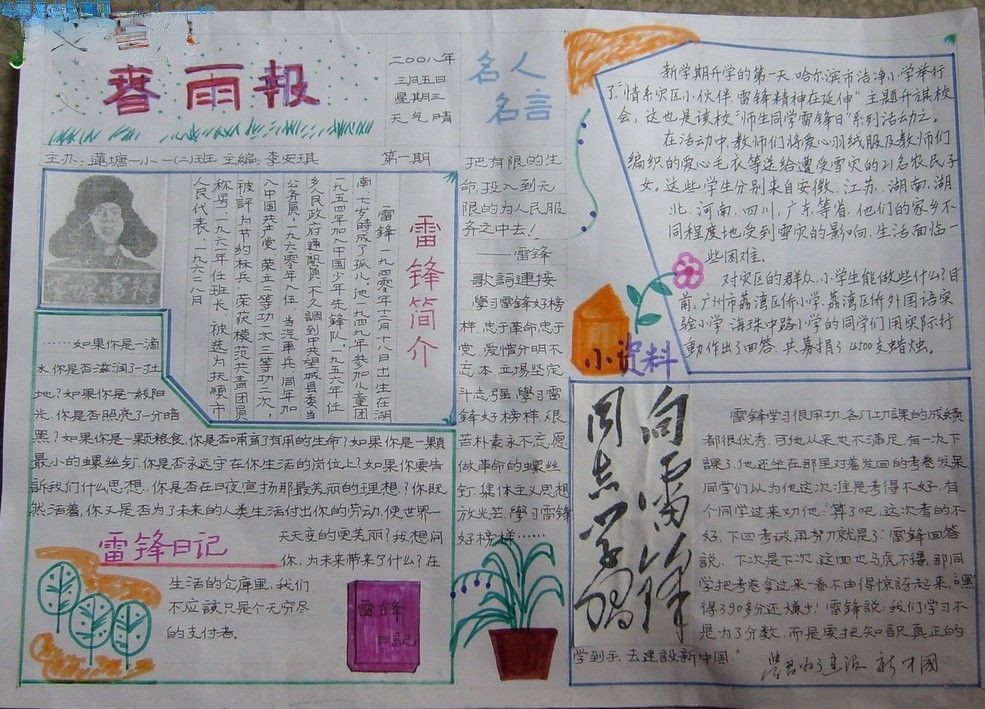 春雨報
二〇〇八年
三月五日
星期三
天气晴
主办:蓮塘一小一(二)班 主編:李安琪
第一期
名人
名言
把有限的生
命,投入到无
限的为人民服
务之中去!
——雷锋
歌詞連接
學习雷锋好榜
样,忠于革命忠于
党,爱憎分明不
忘本,立場坚定
斗志强,學习雷
锋好榜样,艰
苦朴素永不忘,愿
做革命的螺丝
钉,集体主义思想
放光芒,學习雷锋
好榜样……
雷锋简介
雷锋,一九四〇年十二月十八日出生在湖
南,七岁時成了孤儿。他一九四九年参加儿童团
一九五四年加入中国少年先锋隊,一九五六年任
乡人民政府通訊員,不久調到中共望城县委当
公务員,一九六〇年入伍,当汽車兵,同年加
入中国共产党,荣立三等功一次二等功二次,
被評为节約标兵,荣获模范共青团員
称号,一九六一年任班长,被选为抚順市
人民代表,一九六二八月
……如果你是一滴
水,你是否滋潤了一寸土
地?如果你是一線阳
光,你是否照亮了一分暗
黑?如果你是一顆粮食,你是否哺育了有用的生命?如果你是一顆
最小的螺丝钉,你是否永远守在你生活的岗位上?如果你要告
訴我们什么思想,你是否在日夜宣扬那最美丽的理想?你既
然活着,你又是否为了未来的人类生活付出你的劳动,使世界一
天天变的更美丽?我想问
你,为未来带来了什么?在
生活的仓庫里,我们
不应該只是个无穷尽
的支付者。
雷锋日记
雷锋
日記
新学期开学的第一天,哈尔滨市洁净小学举行
了"情系灾区小伙伴,雷锋精神在延伸"主题升旗校
会,这也是该校"师生同学雷锋日"系列活动之一。
在活动中,教师们将爱心羽绒服及教师们
编织的爱心毛衣等送给遭受雪灾的21名农民子
女。这些学生分别来自安徽、江苏、湖南、湖
北、河南、四川、广东等省,他们的家乡不
同程度地受到雪灾的影响,生活面临一
些困难。
对灾区的群众,小学生能做些什么?目
前,广州市荔湾区侨小学、荔湾区侨外国语实
验小学、海珠中路小学的同学们用实际行
動作出了回答,共募捐了4500支蜡烛。
小资料
向雷锋
同志学習
雷锋学习很用功,各门功課的成績
都很优秀,可他从来也不满足,有一次下
課了,他还坐在那里对着发回的考卷发呆
同学们以为他这次准是考得不好,有
个同学过来劝他:"算了吧,这次考的不
好,下回考試再努力就是了"雷锋回答
說:"下次是下次,这回也马虎不得,那同
学把考卷拿过来一看不由得惊訝起来,"嘿,
得了90多分还嫌少!"雷锋說:"我们学习不
是为了分数,而是要把知識真正的
学到手,去建設新中国."